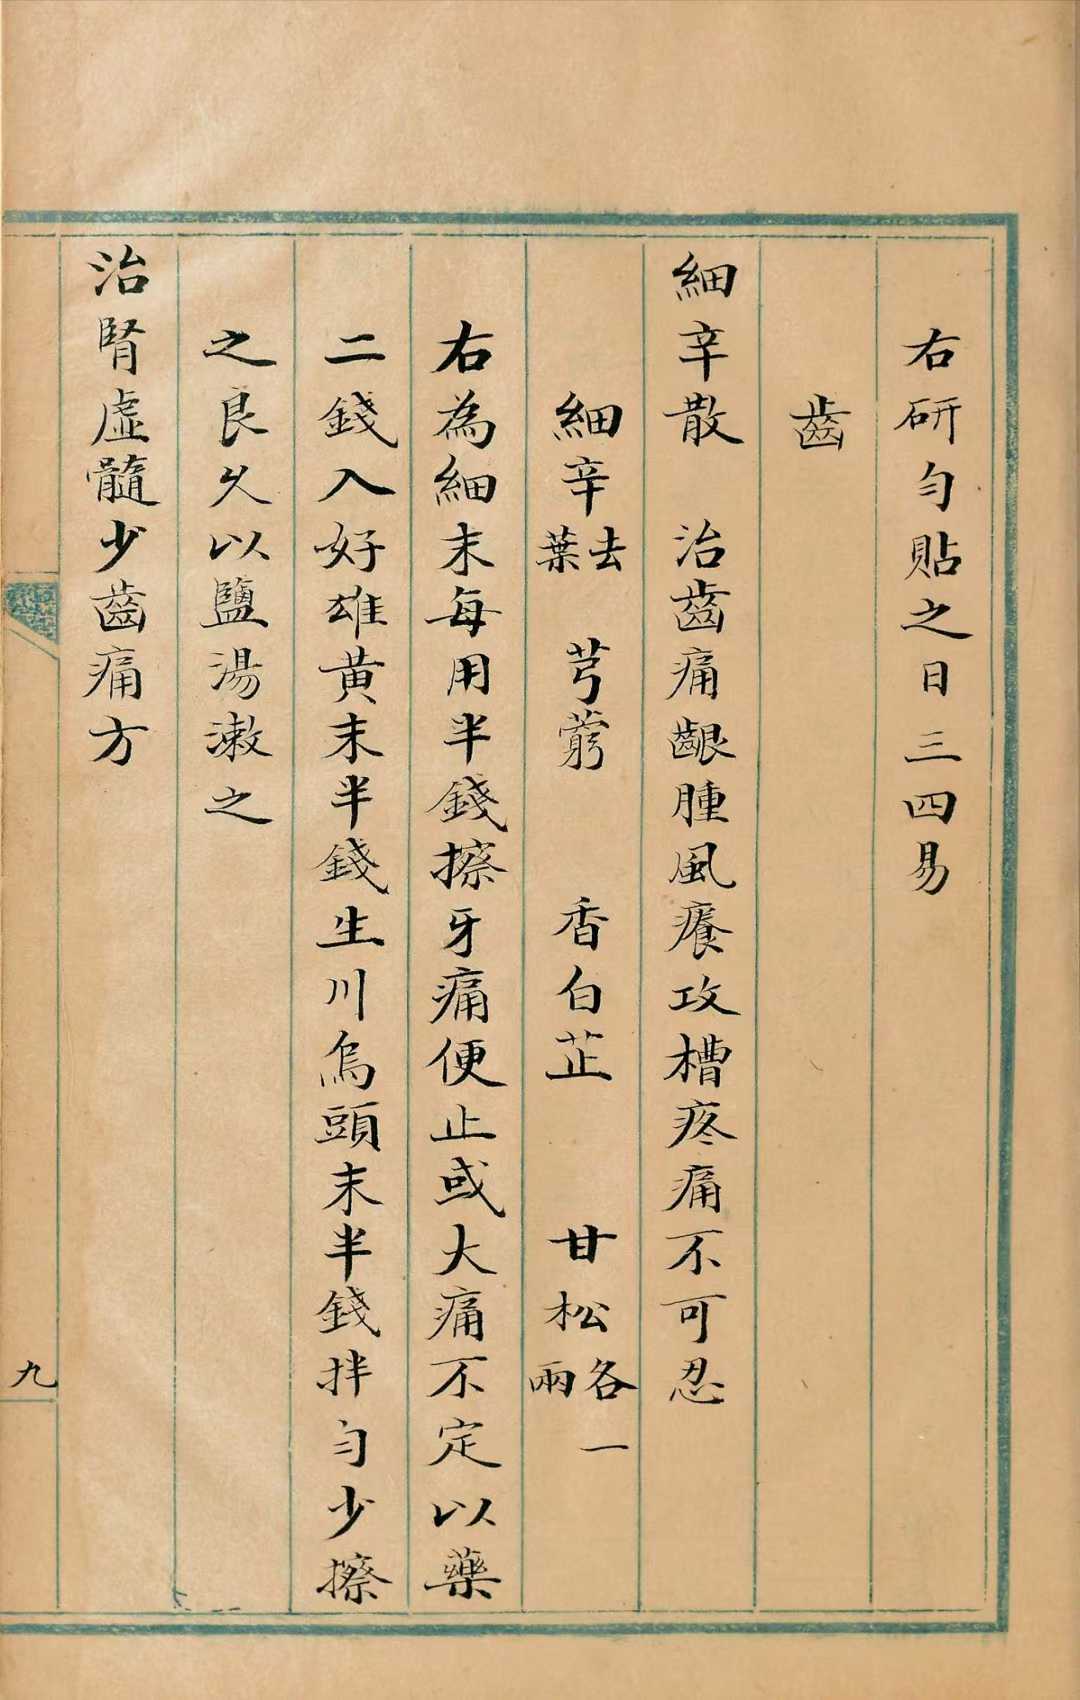 右研勻貼之日三四易
齒
細辛散　治齒痛齦腫風癢攻槽疼痛不可忍
細辛去葉　芎藭　香白芷　甘松各一兩
右為細末每用半錢擦牙痛便止或大痛不定以藥
二錢入好雄黃末半錢生川烏頭末半錢拌勻少擦
之良久以鹽湯漱之
治腎虛髓少齒痛方
九